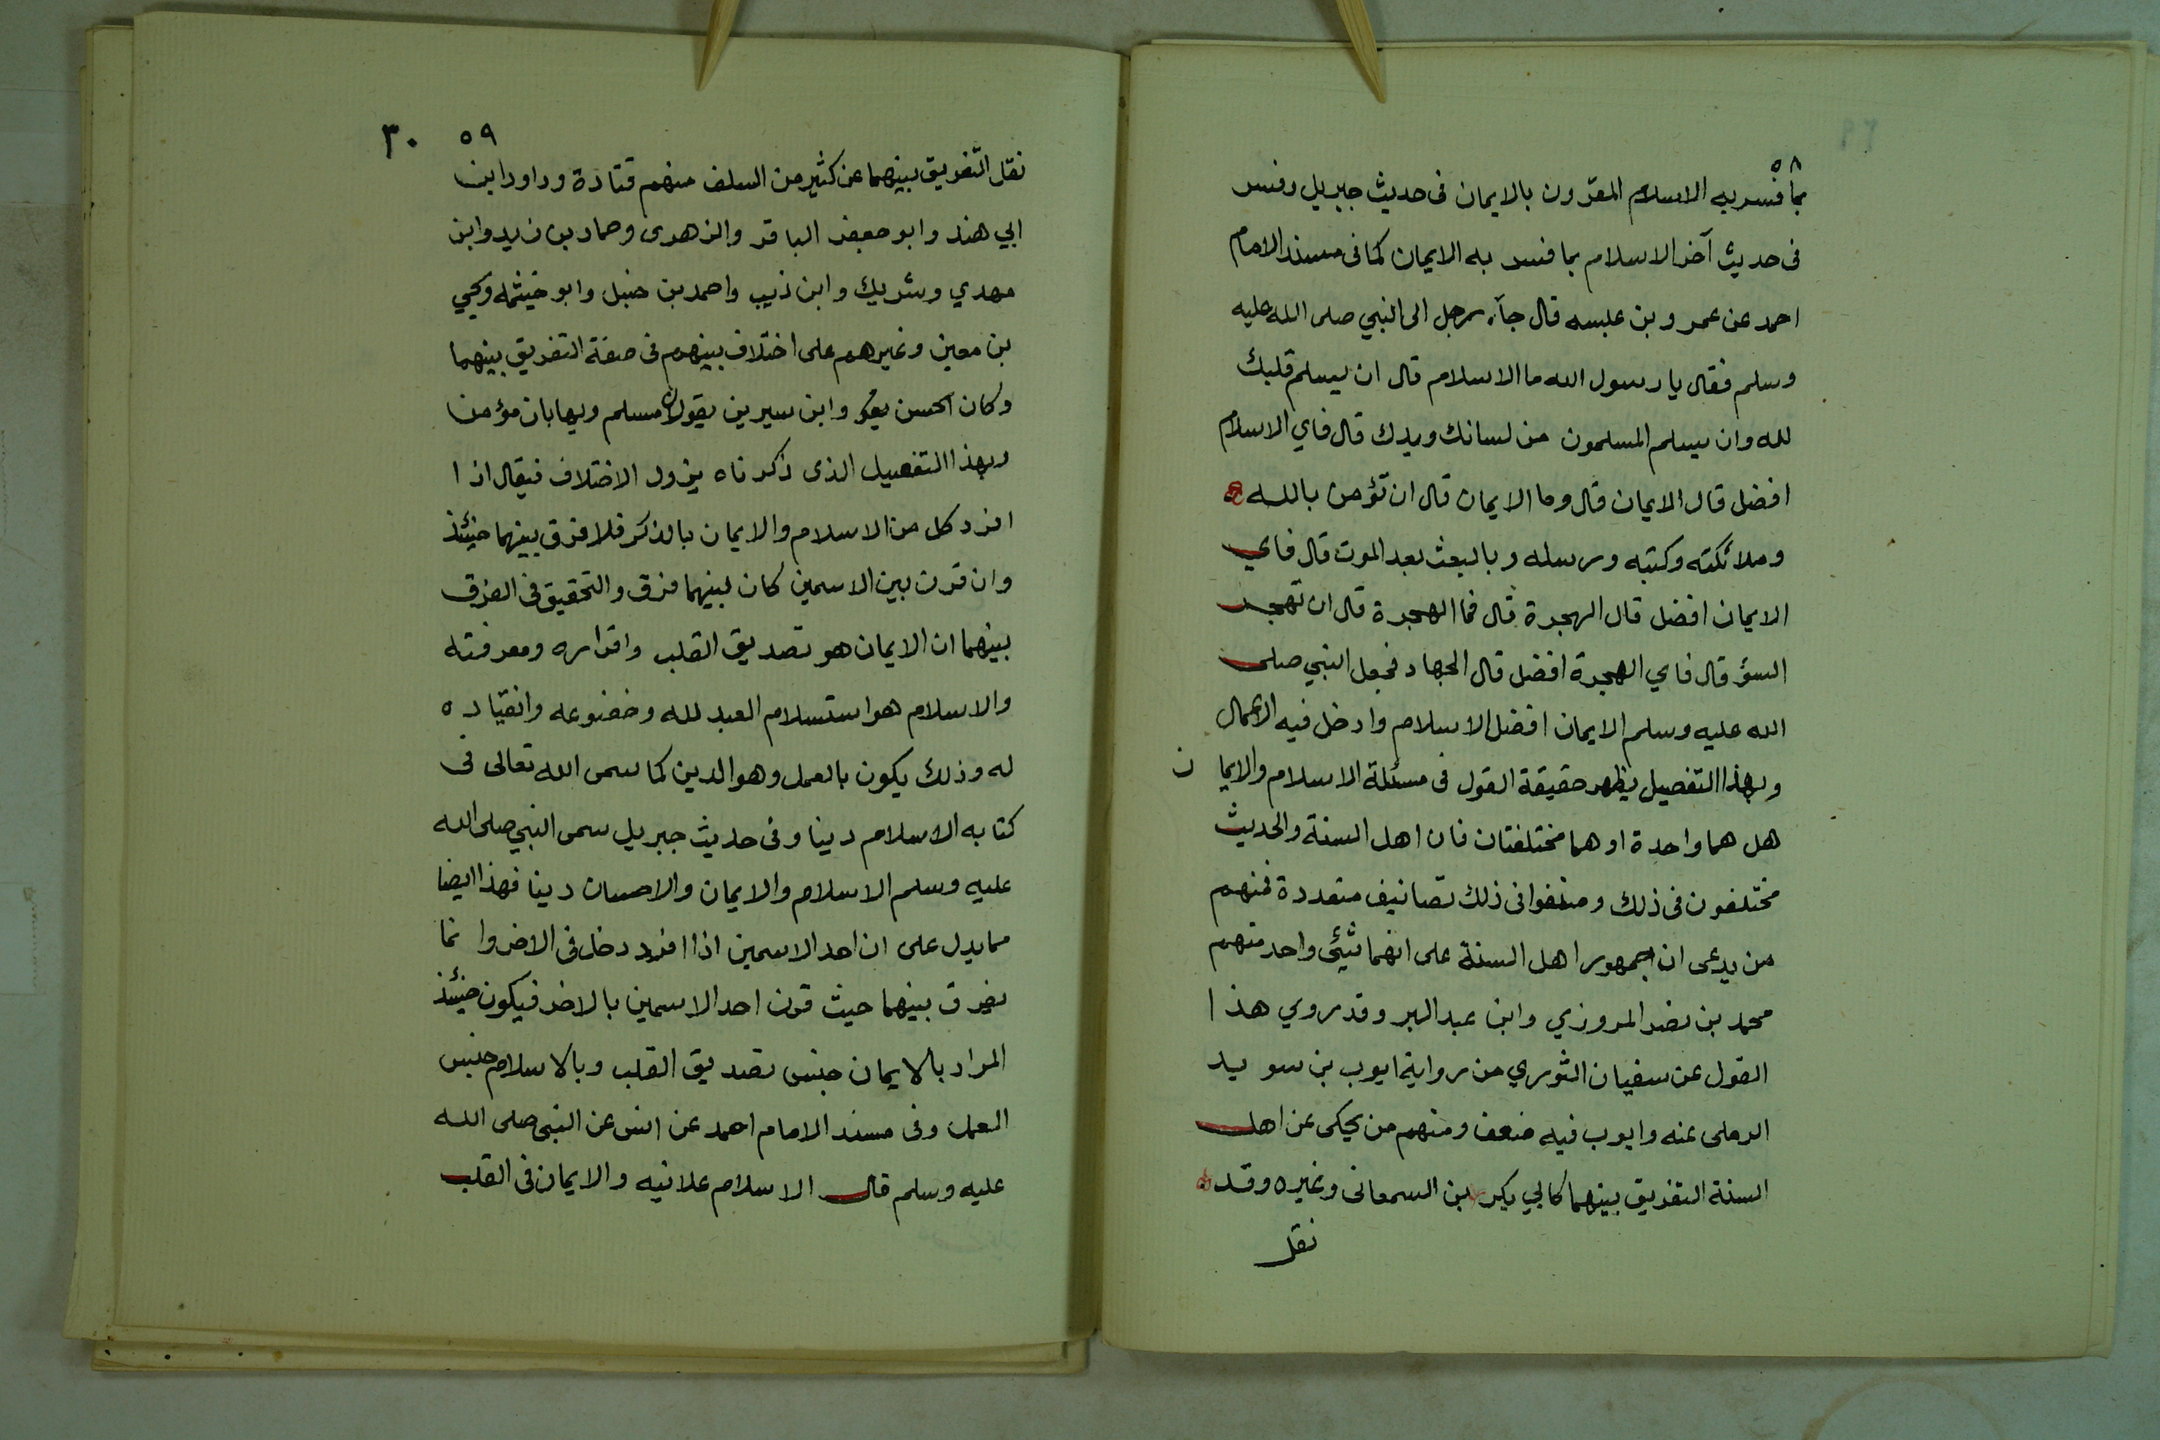 ٥٨
بما فسر به الاسلام المقرون بالايمان فى حديث جبريل وفسر
فى حديث آخر الاسلام بما فسر به الايمان كما فى مسند الامام
احمد عن عمرو بن عبسه قال جآء رجل الى النبي صلى الله عليه
وسلم فقال يا رسول الله ما الاسلام قال ان يسلم قلبك
لله وان يسلم المسلمون من لسانك ويدك قال فاي الاسلام
افضل قال الايمان قال وما الايمان قال ان تؤمن بالله
وملائكته وكتبه ورسله وبالبعث بعد الموت قال فاي
الايمان افضل قال الهجرة قال فما الهجرة قال ان تهجر
السؤ قال فاي الهجرة افضل قال الجهاد فجعل النبي صلى
الله عليه وسلم الايمان افضل الاسلام وادخل فيه الاعمال
وبهذا التفصيل يظهر حقيقة القول فى مسئلة الاسلام والايمان
هل هما واحدة او هما مختلفتان فان اهل السنة والحديث
مختلفون فى ذلك وصنفوا فى ذلك تصانيف متعددة فمنهم
من يدعى ان جمهور اهل السنة على انهما شيئ واحد منهم
محمد بن نصر المروزي وابن عبد البر وقد روي هذا
القول عن سفيان الثوري من رواية ايوب بن سويد
الرملى عنه وايوب فيه ضعف ومنهم من يحكى عن اهل
السنة التفريق بينهما كابي بكر بن السمعانى وغيره وقد
نقل
٥٩ ٣٠
نقل التفريق بينهما عن كثير من السلف منهم قتادة وداود ابن
ابي هند وابو جعفر الباقر والزهرى وحماد بن زيد وابن
مهدي وشريك وابن ذيب واحمد بن حنبل وابو خيثمه ويحي
بن معين وغيرهم على اختلاف بينهم فى صفة التفريق بينهما
وكان الحسن وابن سيرين يقولان مسلم ويهابان مؤمنا
وبهذا التفصيل الذى ذكرناه يزول الاختلاف فيقال اذا
افرد كل من الاسلام والايمان بالذكر فلا فرق بينهما حينئذ
وان قرن بين الاسمين كان بينهما فرق والتحقيق فى الفرق
بينهما ان الايمان هو تصديق القلب واقراره ومعرفته
والاسلام هو استسلام العبد لله وخضوعه وانقياده
له وذلك يكون بالعمل وهو الدين كما سمى الله تعالى فى
كتابه الاسلام دينا وفى حديث جبريل سمى النبي صلى الله
عليه وسلم الاسلام والايمان والاحسان دينا فهذا ايضا
مما يدل على ان احد الاسمين اذا افرد دخل فى الاخر وانما
يفرق بينهما حيث قرن احد الاسمين بالاخر فيكون حينئذ
المراد بالايمان جنس تصديق القلب وبالاسلام جنس
العمل وفى مسند الامام احمد عن انس عن النبي صلى الله
عليه وسلم قال الاسلام علانيه والايمان فى القلب